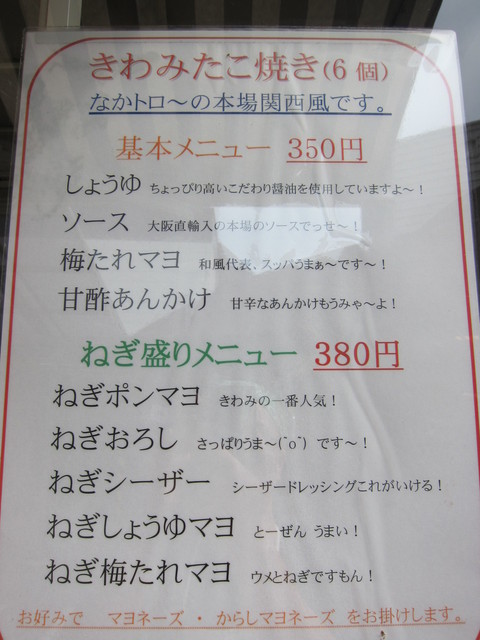 きわみたこ焼き(6 個)
なかトロ～の本場関西風です。
基本メニュー 350円
しょうゆ ちょっぴり高いこだわり醤油を使用していますよ～！
ソース 大阪直輸入の本場のソースでっせ～！
梅たれマヨ 和風代表、スッパうまぁ～です～！
甘酢あんかけ 甘辛なあんかけもうみゃ～よ！
ねぎ盛りメニュー 380円
ねぎポンマヨ きわみの一番人気！
ねぎおろし さっぱりうま～(ﾟoﾟ) です～！
ねぎシーザー シーザードレッシングこれがいける！
ねぎしょうゆマヨ とーぜん うまい！
ねぎ梅たれマヨ ウメとねぎですもん！
お好みで マヨネーズ ・ からしマヨネーズ をお掛けします。